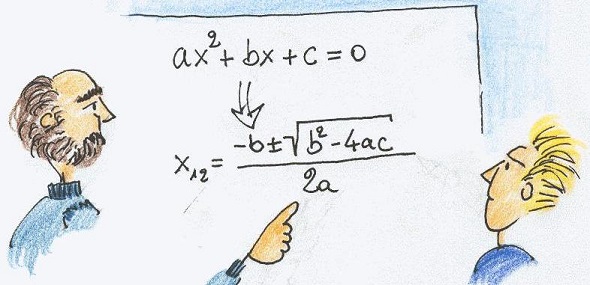 ax² + bx + c = 0
⇓
x₁₂ = (-b ± √(b² - 4ac)) / 2a